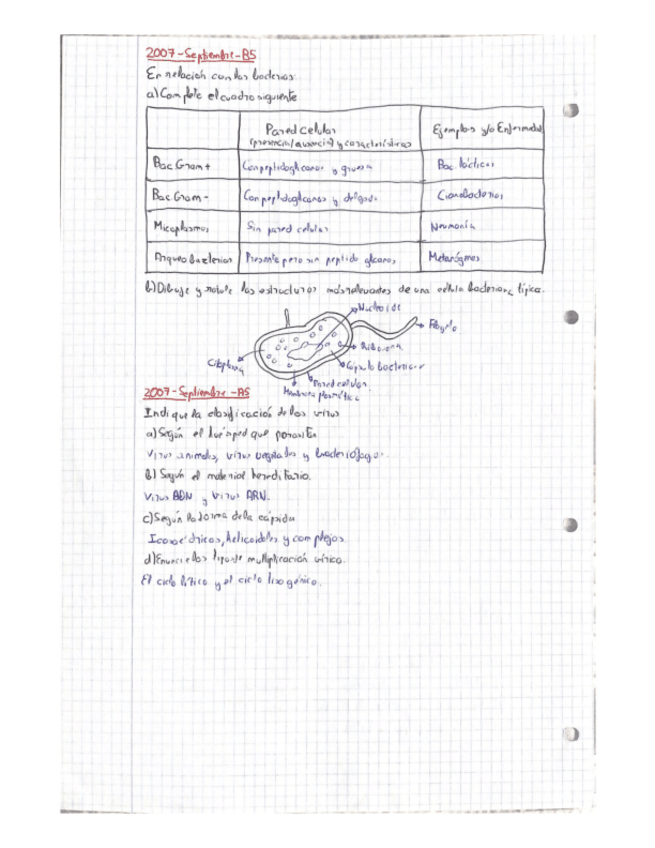 2007-Septiembre-B5
En relación con las bacterias:
a) Complete el cuadro siguiente
Pared Celular
(presencia/ausencia) y características
Ejemplos y/o Enfermedad
Bac Gram + Con peptidoglicanos y gruesa Bac lácticas
Bac Gram - Con peptidoglicanos y delgada Cianobacterias
Micoplasmas Sin pared celular Neumonía
Arqueobacterias Presente pero sin peptido glicanos Metanógenos
b) Dibuje y rotule las estructuras más relevantes de una célula bacteriana típica.
Nucleoide
Flagelo
Ribosoma
Citoplasma
Cápsula bacteriana
Pared celular
Membrana plasmática
2007-Septiembre-A5
Indique la clasificación de los virus
a) Según el huésped que parasiten
Virus animales, virus vegetales y bacteriófagos.
b) Según el material hereditario.
Virus ADN y virus ARN.
c) Según la forma de la cápsida
Icosaédricos, helicoidales y complejos.
d) Enuncie los tipos de multiplicación vírica.
El ciclo lítico y el ciclo lisogénico.